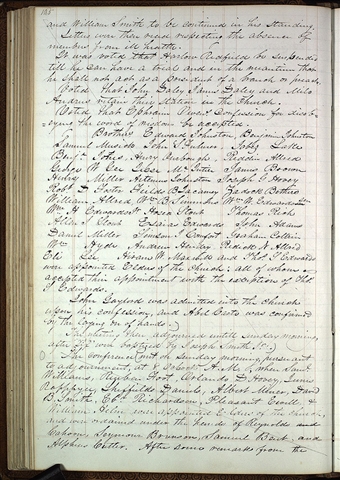 and William Smith to be continued in his standing.
Letters was then read respecting the absence of
members from ill health.
It was voted that Harlow Redfield be suspended
till he can have a trial and in the meantime that
he shall not act as a President of a branch or preach.
Voted that John Daley James Daley and Milo
Andrus resign their station in the Church.
Voted that Ephraim Owens' Confession for disob-
eying the word of wisdom be accepted.
Brothers Edward Johnston, Benjamin Johnston
Samuel Musick John S. Fulmer, Jabez Lake
Benj. Jones, Henry Reddin Allred
George W. Gee, James Brown
Henry Miller Artemus Johnson Joseph G. Hovey
Rob. D. Foster Fields B. Jacaway Zadock Bethers
William Allred Wm. B. Simmons Wm. W. Edwards
Wm. H. Edwards Hosea Stout Thomas Rich
Allen J. Stout Esaias Edwards John Adams
Daniel Miller Simeon J. Comfort Graham Coltrin
Wm. Hyde Andrew Henry Redick N. Allred
Eli Lee Hiram W. Maxfield and Thos. J. Edwards
were appointed Elders of the Church; all of whom
accepted their appointment with the exception of Thos.
J. Edwards.
John Gaylord was admitted into the church
upon his confession, and Abel Casto was confirmed
by the laying on of hands.
adjourned until Sunday morning,
after 50 were baptized by Joseph Smith Jr.
The Conference met on Sunday morning, pursuant
to adjournment, at 9 o'clock A.M. when Saml.
Williams, Reuben Foot, Orlando D. Hovey, James
Rappleye, Sheffield Daniels, Albert Miner, David
B. Smith, Richardson, Pleasant Ewell, &
William Helm were appointed Elders of the Church,
and were ordained under the hands of Reynolds and
Cahoon, Seymour Brunson, Samuel Bent, and
Alpheus Cutler. After some remarks from the